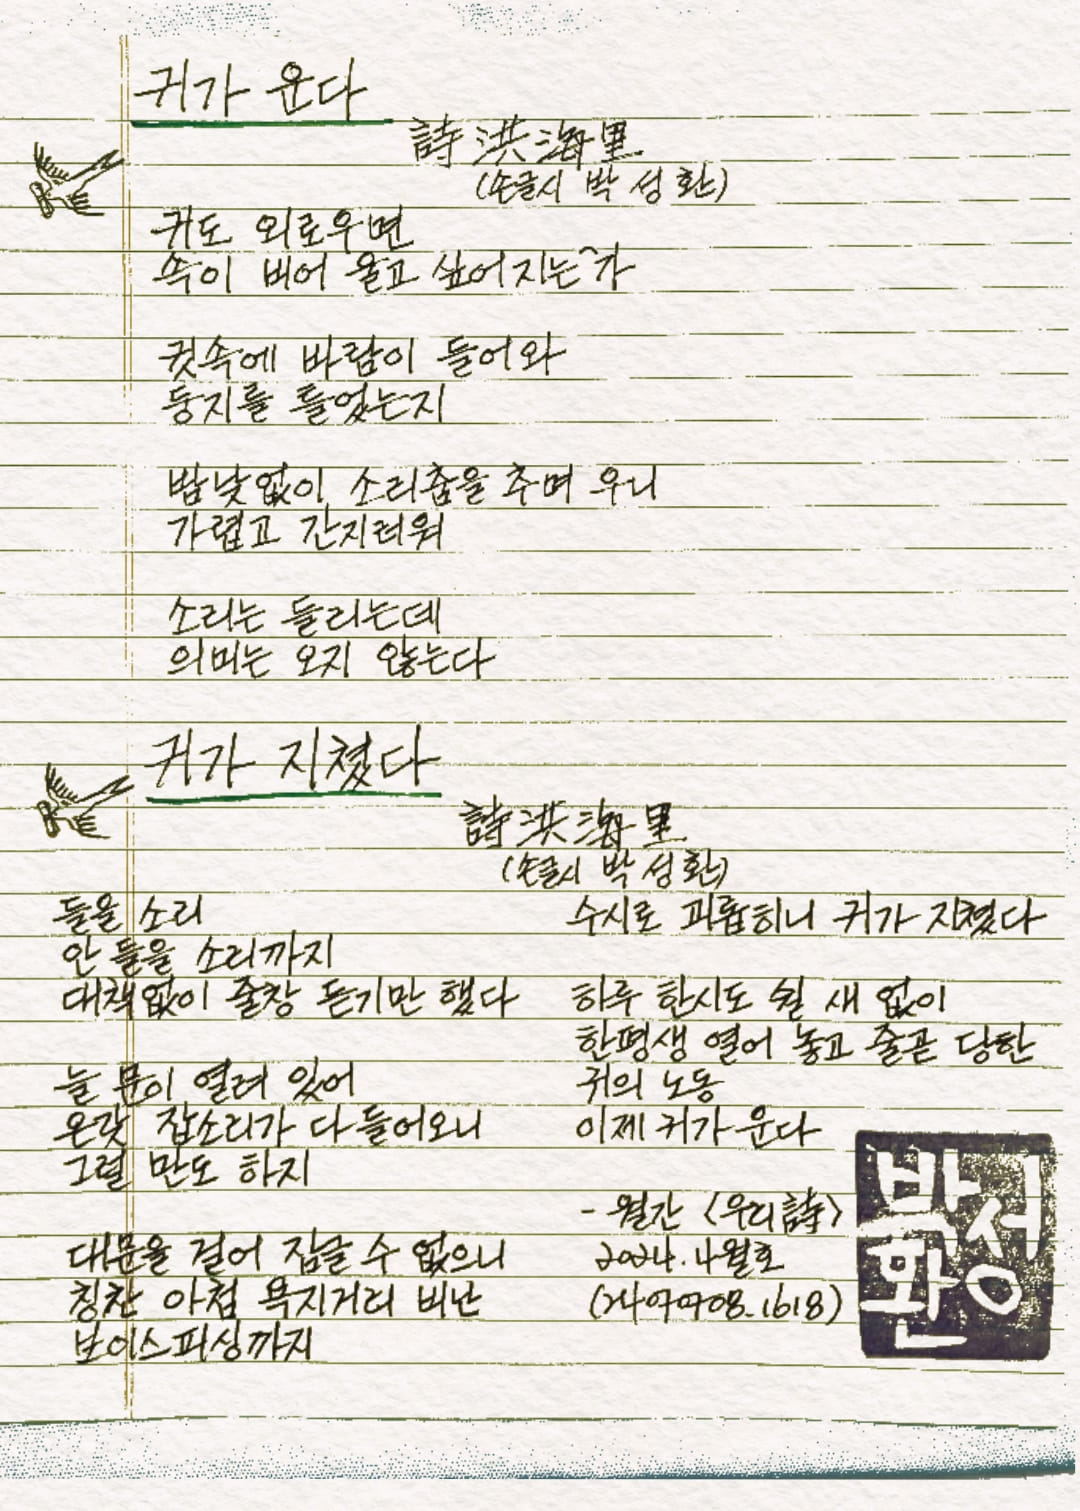 귀가 운다
詩 洪海里
(손글시 박성환)
귀도 외로우면
속이 비어 울고 싶어지는가
귓속에 바람이 들어와
둥지를 틀었는지
밤낮없이 소리춤을 추며 우니
가렵고 간지러워
소리는 들리는데
의미는 오지 않는다
귀가 지쳤다
詩 洪海里
(손글시 박성환)
들을 소리
안 들을 소리까지
대책없이 줄창 듣기만 했다
늘 문이 열려 있어
온갖 잡소리가 다 들어오니
그럴 만도 하지
대문을 걸어 잠글 수 없으니
칭찬 아첨 욕지거리 비난
보이스피싱까지
수시로 괴롭히니 귀가 지쳤다
하루 한시도 쉴 새 없이
한평생 열어 놓고 줄곧 당한
귀의 노동
이제 귀가 운다
- 월간 〈우리詩〉
2024. 4월호
박성환